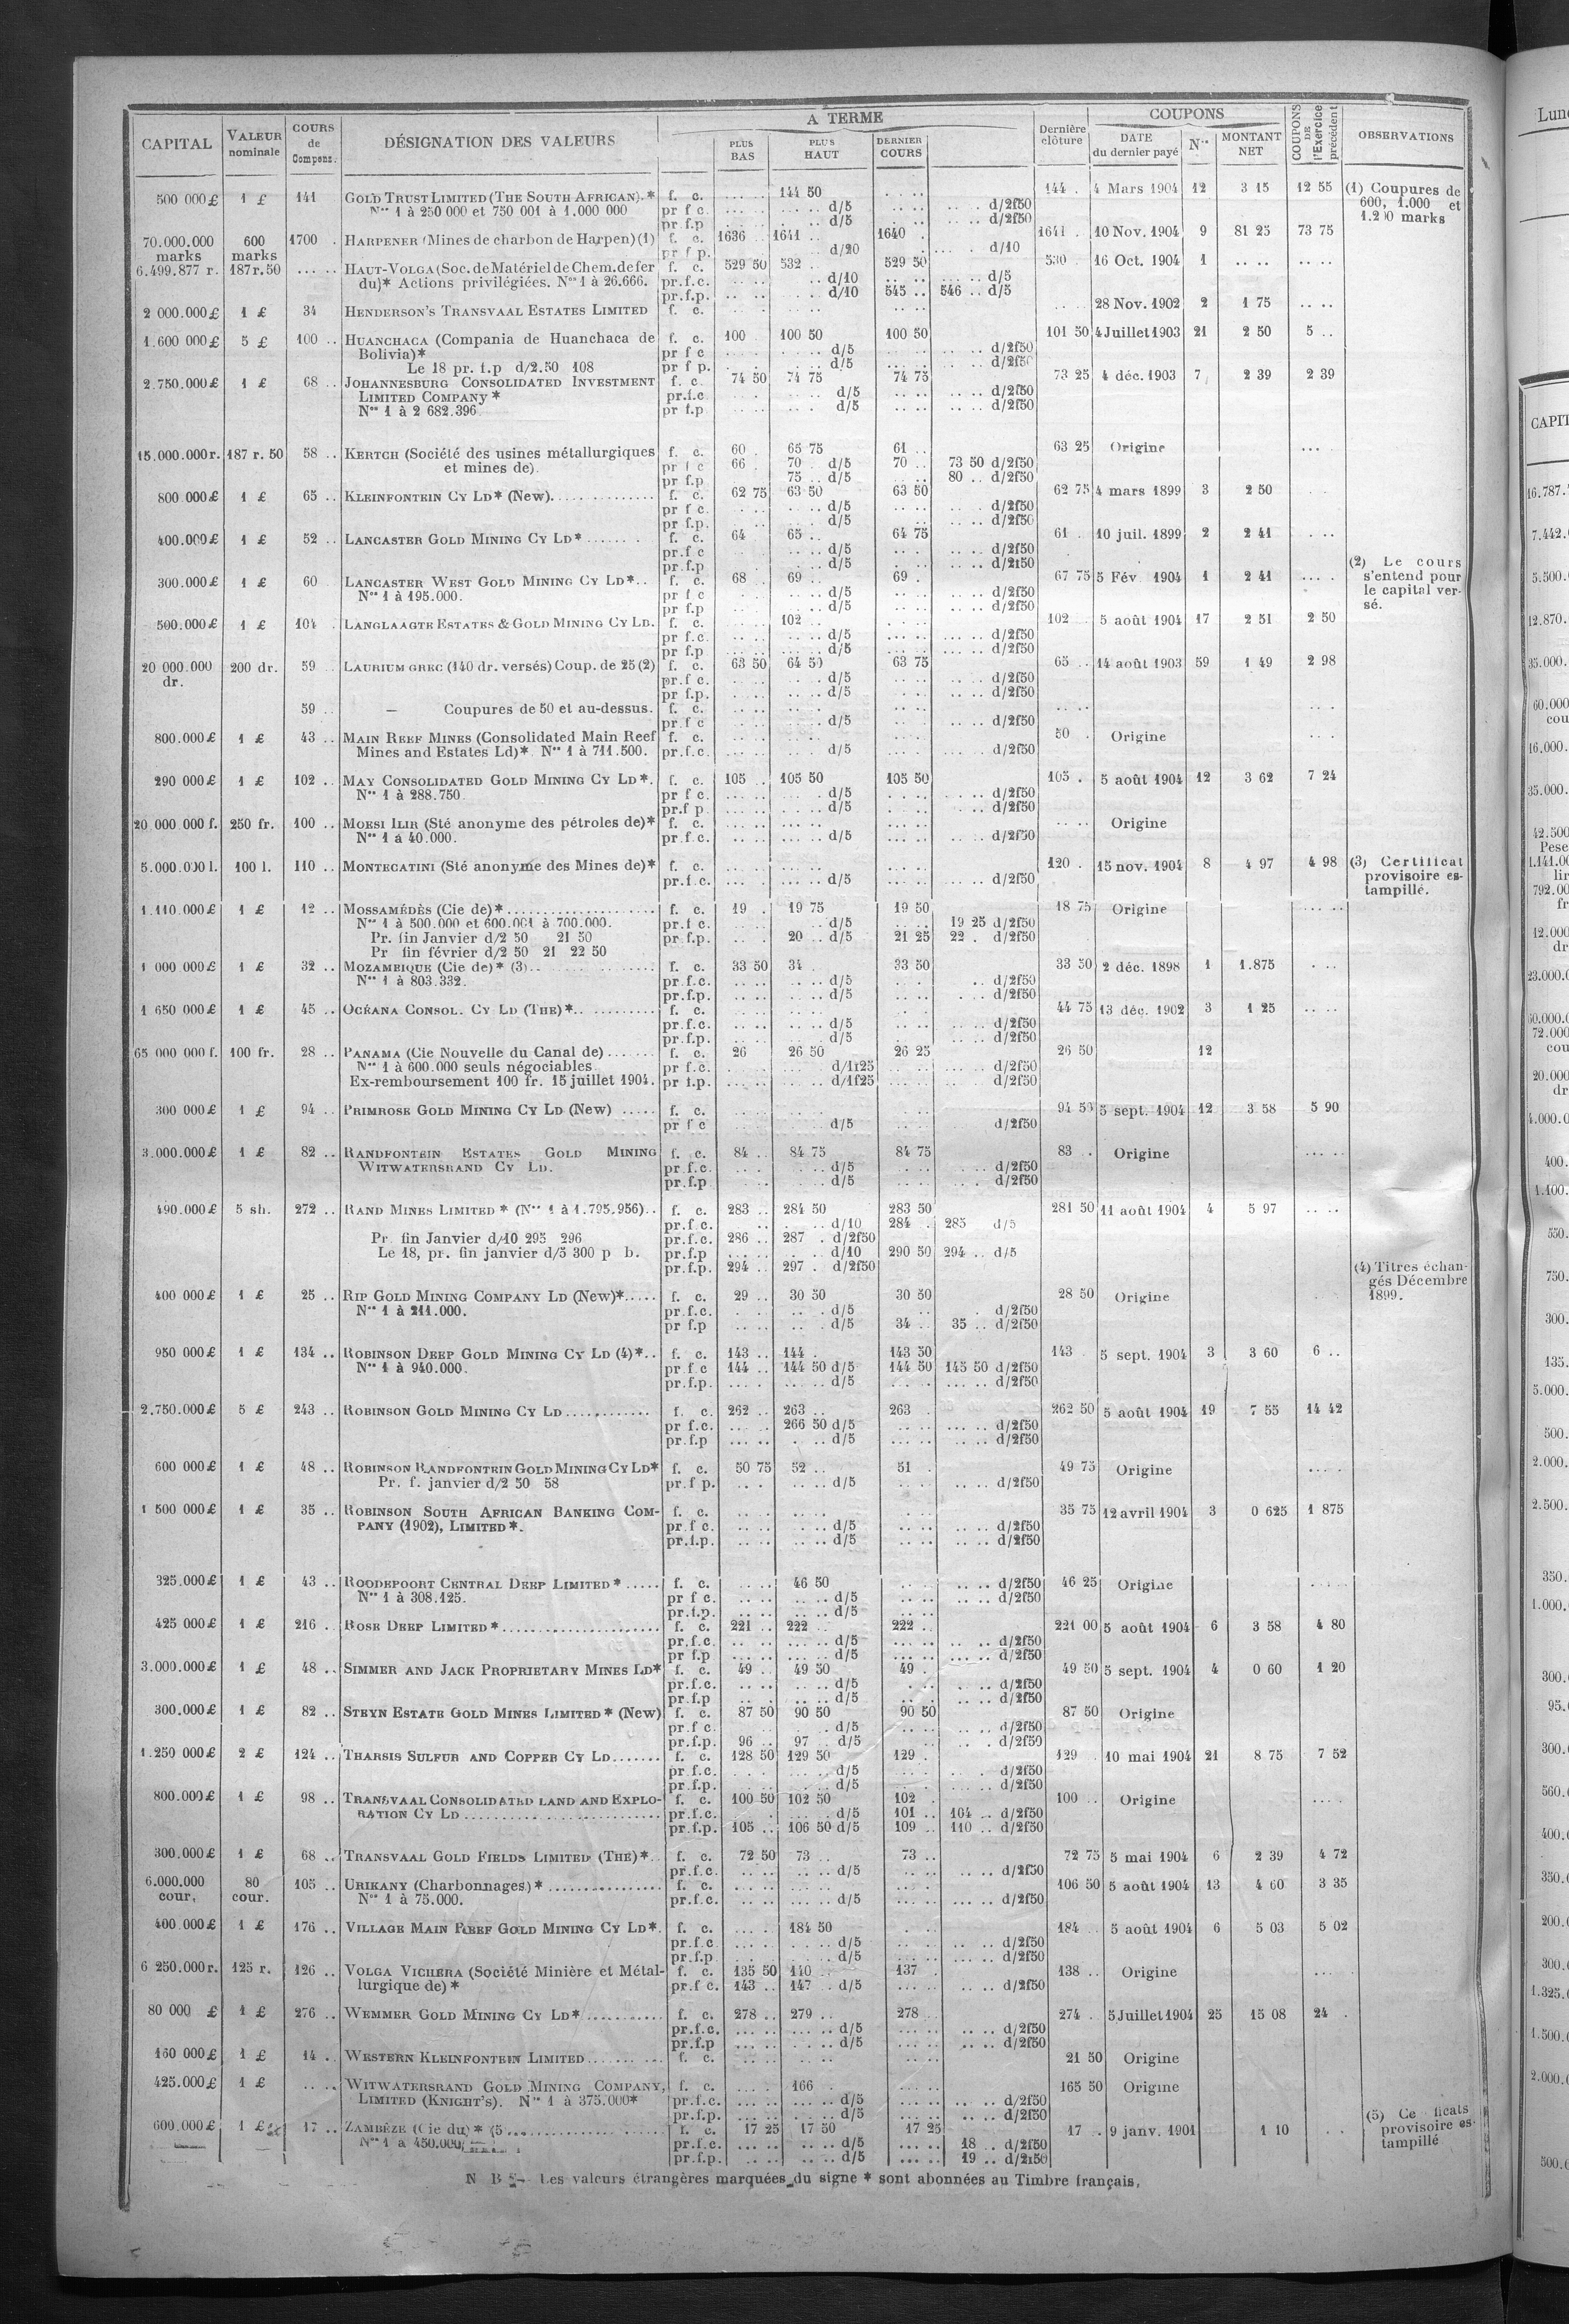 CAPITAL | VALEUR nominale | COURS de Compens. | DÉSIGNATION DES VALEURS | A TERME | PLUS BAS | PLUS HAUT | DERNIER COURS | Dernière clôture | COUPONS | DATE du dernier payé | Nos | MONTANT NET | COUPONS DE l'Exercice précédent | OBSERVATIONS
500 000 £ 1 £ 141 GOLD TRUST LIMITED (THE SOUTH AFRICAN).* f. c. 144 50 144 . 4 Mars 1904 12 3 15 12 55 (1) Coupures de
Nos 1 à 250 000 et 750 001 à 1.000 000 pr f c. d/5 d/2f50 600, 1.000 et
pr f.p d/5 d/2f50 1.200 marks
70.000.000 600 1700 . HARPENER (Mines de charbon de Harpen) (1) f. c. 1636 1641 1640 1641 . 10 Nov. 1904 9 81 25 73 75
marks marks pr f p. d/20 d/10
6.499.877 r. 187r.50 HAUT-VOLGA (Soc. de Matériel de Chem. de fer f. c. 529 50 532 . 529 50 530 16 Oct. 1904 1
du)* Actions privilégiées. Nos 1 à 26.666. pr.f.c. d/10 d/5
pr.f.p. d/10 545 .. 546 .. d/5
2 000.000 £ 1 £ 34 HENDERSON'S TRANSVAAL ESTATES LIMITED f. c. 28 Nov. 1902 2 1 75
1.600 000 £ 5 £ 100 .. HUANCHACA (Compania de Huanchaca de f. c. 100 100 50 100 50 101 50 4 Juillet 1903 21 2 50 5 ..
Bolivia)* pr f c d/5 d/2f50
Le 18 pr. f.p d/2.50 108 pr f p. d/5 d/2f50
2.750.000 £ 1 £ 68 .. JOHANNESBURG CONSOLIDATED INVESTMENT f. c. 74 50 74 75 74 75 73 25 4 déc. 1903 7 2 39 2 39
LIMITED COMPANY * pr.f.c d/5 d/2f50
Nos 1 à 2 682.396. pr f.p d/5 d/2f50
15.000.000 r. 187 r. 50 58 .. KERTCH (Société des usines métallurgiques f. c. 60 . 65 75 61 .. 63 25 Origine
et mines de). pr f c 66 . 70 . d/5 70 .. 73 50 d/2f50
pr f.p 75 .. d/5 80 .. d/2f50
800 000 £ 1 £ 65 .. KLEINFONTEIN CY LD* (New). f. c. 62 75 63 50 63 50 62 75 4 mars 1899 3 2 50
pr f c. d/5 d/2f50
pr f.p. d/5 d/2f50
400.000 £ 1 £ 52 .. LANCASTER GOLD MINING CY LD* f. c. 64 65 .. 64 75 61 . 10 juil. 1899 2 2 41
pr.f c d/5 d/2f50
pr.f.p d/5 d/2f50 (2) Le cours
300.000 £ 1 £ 60 LANCASTER WEST GOLD MINING CY LD*.. f. c. 68 . 69 .. 69 . 67 75 5 Fév 1904 1 2 41 s'entend pour
Nos 1 à 195.000. pr f c d/5 d/2f50 le capital ver-
pr f.p d/5 d/2f50 sé.
500.000 £ 1 £ 104 . LANGLAAGTE ESTATES & GOLD MINING CY LD. f. c. 102 .. 102 5 août 1904 17 2 51 2 50
pr f.c. d/5 d/2f50
pr f.p d/5 d/2f50
20 000.000 200 dr. 59 .. LAURIUM GREC (140 dr. versés) Coup. de 25 (2) f. c. 63 50 64 50 63 75 65 .. 14 août 1903 59 1 49 2 98
dr. pr.f c. d/5 d/2f50
pr f.p. d/5 d/2f50
59 .. — Coupures de 50 et au-dessus. f. c.
pr.f c d/5 d/2f50
800.000 £ 1 £ 43 .. MAIN REEF MINES (Consolidated Main Reef f. c. 50 . Origine
Mines and Estates Ld)* Nos 1 à 711.500. pr.f.c. d/5 d/2f50
290 000 £ 1 £ 102 .. MAY CONSOLIDATED GOLD MINING CY LD*. f. c. 105 . 105 50 105 50 105 . 5 août 1904 12 3 62 7 24
Nos 1 à 288.750. pr f c. d/5 d/2f50
pr.f p. d/5 d/2f50
20 000 000 f. 250 fr. 100 .. MOESI ILIR (Sté anonyme des pétroles de)* f. c. Origine
Nos 1 à 40.000. pr.f.c. d/5 d/2f50
5.000.000 l. 100 l. 110 .. MONTECATINI (Sté anonyme des Mines de)* f. c. 120 . 15 nov. 1904 8 4 97 4 98 (3) Certificat
pr.f.c. d/5 d/2f50 provisoire es-
tampillé.
1.110.000 £ 1 £ 12 .. MOSSAMÉDÈS (Cie de)* f. c. 19 . 19 75 19 50 18 75 Origine
Nos 1 à 500.000 et 600.001 à 700.000. pr.f c. d/5 19 25 d/2f50
Pr. fin Janvier d/2 50 21 50 pr f.p. 20 .. d/5 21 25 22 . d/2f50
Pr fin février d/2 50 21 22 50
1 000 000 £ 1 £ 32 .. MOZAMBIQUE (Cie de)* (3) f. c. 33 50 34 . 33 50 33 50 2 déc. 1898 1 1.875
Nos 1 à 803.332. pr.f.c. d/5 d/2f50
pr.f.p. d/5 d/2f50
1 650 000 £ 1 £ 45 .. OCÉANA CONSOL. CY LD (THE)* f. c. 44 75 13 déc. 1902 3 1 25
pr.f.c. d/5 d/2f50
pr.f.p. d/5 d/2f50
65 000 000 f. 100 fr. 28 .. PANAMA (Cie Nouvelle du Canal de) f. c. 26 26 50 26 25 26 50 12
Nos 1 à 600.000 seuls négociables pr f.c. d/1f25 d/2f50
Ex-remboursement 100 fr. 15 juillet 1904. pr f.p. d/1f25 d/2f50
300 000 £ 1 £ 94 .. PRIMROSE GOLD MINING CY LD (New) f. c. 94 50 5 sept. 1904 12 3 58 5 90
pr f c d/5 d/2f50
3.000.000 £ 1 £ 82 .. RANDFONTEIN ESTATES GOLD MINING f. c. 84 .. 84 75 84 75 83 . Origine
WITWATERSRAND CY LD. pr.f.c. d/5 d/2f50
pr.f.p d/5 d/2f50
490.000 £ 5 sh. 272 .. RAND MINES LIMITED * (Nos 1 à 1.795.956).. f. c. 283 .. 284 50 283 50 281 50 11 août 1904 4 5 97
pr.f c. d/10 284 . 285 d/5
Pr fin Janvier d/10 295 296 pr.f.c. 286 .. 287 . d/2f50
Le 18, pr. fin janvier d/5 300 p b. pr.f.p d/10 290 50 294 .. d/5
pr.f.p. 294 .. 297 . d/2f50 (4) Titres échan-
gés Décembre
400 000 £ 1 £ 25 .. RIP GOLD MINING COMPANY LD (New)* f. c. 29 .. 30 50 30 50 28 50 Origine 1899.
Nos 1 à 211.000. pr.f.c. d/5 d/2f50
pr f.p d/5 34 .. 35 .. d/2f50
950 000 £ 1 £ 134 .. ROBINSON DEEP GOLD MINING CY LD (4)*.. f. c. 143 .. 144 . 143 50 143 . 5 sept. 1904 3 3 60 6 ..
Nos 1 à 940.000. pr f c 144 .. 144 50 d/5 144 50 145 50 d/2f50
pr.f.p. d/5 d/2f50
2.750.000 £ 5 £ 243 .. ROBINSON GOLD MINING CY LD f. c. 262 .. 263 .. 263 . 262 50 5 août 1904 19 7 55 14 42
pr f.c. 266 50 d/5 d/2f50
pr.f.p d/5 d/2f50
600 000 £ 1 £ 48 .. ROBINSON RANDFONTEIN GOLD MINING CY LD* f. c. 50 75 52 .. 51 . 49 75 Origine
Pr. f. janvier d/2 50 58 pr.f p. d/5 d/2f50
1 500 000 £ 1 £ 35 .. ROBINSON SOUTH AFRICAN BANKING COM- f. c. 35 75 12 avril 1904 3 0 625 1 875
PANY (1902), LIMITED *. pr.f c. d/5 d/2f50
pr.f.p. d/5 d/2f50
325.000 £ 1 £ 43 .. ROODEPOORT CENTRAL DEEP LIMITED * f. c. 46 50 d/2f50 46 25 Origine
Nos 1 à 308.125. pr f c. d/5 d/2f50
pr.f.p. d/5
425 000 £ 1 £ 216 .. ROSE DEEP LIMITED * f. c. 221 .. 222 .. 222 .. 221 00 5 août 1904 6 3 58 4 80
pr.f.c. d/5 d/2f50
pr f.p d/5 d/2f50
3.000.000 £ 1 £ 48 .. SIMMER AND JACK PROPRIETARY MINES LD* f. c. 49 .. 49 50 49 . 49 50 5 sept. 1904 4 0 60 1 20
pr.f.c. d/5 d/2f50
pr.f.p d/5 d/2f50
300.000 £ 1 £ 82 .. STEYN ESTATE GOLD MINES LIMITED * (New) f. c. 87 50 90 50 90 50 87 50 Origine
pr.f c. d/5 d/2f50
pr.f.p. 96 .. 97 . d/5 d/2f50
1.250 000 £ 2 £ 124 .. THARSIS SULFUR AND COPPER CY LD f. c. 128 50 129 50 129 . 129 . 10 mai 1904 21 8 75 7 52
pr.f.c. d/5 d/2f50
pr.f.p. d/5 d/2f50
800.000 £ 1 £ 98 .. TRANSVAAL CONSOLIDATED LAND AND EXPLO- f. c. 100 50 102 50 102 . 100 .. Origine
RATION CY LD pr.f.c. d/5 101 .. 104 .. d/2f50
pr.f.p. 105 .. 106 50 d/5 109 .. 110 .. d/2f50
300.000 £ 1 £ 68 .. TRANSVAAL GOLD FIELDS LIMITED (THE)* f. c. 72 50 73 .. 73 .. 72 75 5 mai 1904 6 2 39 4 72
pr.f.c. d/5 d/2f50
6.000.000 80 105 .. URIKANY (Charbonnages) * f. c. 106 50 5 août 1904 13 4 60 3 35
cour. cour. Nos 1 à 75.000. pr.f.c. d/5 d/2f50
400.000 £ 1 £ 176 .. VILLAGE MAIN REEF GOLD MINING CY LD*. f. c. 184 50 184 .. 5 août 1904 6 5 03 5 02
pr.f.c d/5 d/2f50
pr.f.p d/5 d/2f50
6 250.000 r. 125 r. 126 .. VOLGA VICHERA (Société Minière et Métal- f. c. 135 50 140 .. 137 . 138 .. Origine
lurgique de) * pr.f c. 143 .. 147 . d/5 d/2f50
80 000 £ 1 £ 276 .. WEMMER GOLD MINING CY LD* f. c. 278 .. 279 .. 278 .. 274 . 5 Juillet 1904 25 15 08 24 .
pr.f.c. d/5 d/2f50
pr.f.p d/5 d/2f50
160 000 £ 1 £ 14 .. WESTERN KLEINFONTEIN LIMITED f. c. 21 50 Origine
425.000 £ 1 £ .. .. WITWATERSRAND GOLD MINING COMPANY, f. c. 166 . 165 50 Origine
LIMITED (KNIGHT'S). Nos 1 à 375.000* pr.f.c. d/5 d/2f50
pr.f.p. d/5 d/2f50
600.000 £ 1 £ 17 .. ZAMBÈZE (Cie du) * (5 f. c. 17 25 17 50 17 25 17 . 9 janv. 1901 1 10 (5) Ce ficats
Nos 1 à 450.000 pr.f.c. d/5 18 .. d/2f50 provisoire es-
pr.f.p. d/5 19 .. d/2f50 tampillé
N B — Les valeurs étrangères marquées du signe * sont abonnées au Timbre français.
Lun
CAPIT
16.787.
7.442.
5.500.
12.870.
35.000.
60.000
cou
16.000.
35.000.
42.500
Pese
1.141.00
lir
792.00
fr
12.000
dr
23.000.
50.000.
72.000
cou
20.000
dr
4.000.
400.
1.100.
550.
750.
300.
135.
5.000.
500.
2.000.
2.500.
350.
1.000.
300.
95.
300.
560.
400.
350.
200.
300.
1.325.
1.500.
2.000.
500.